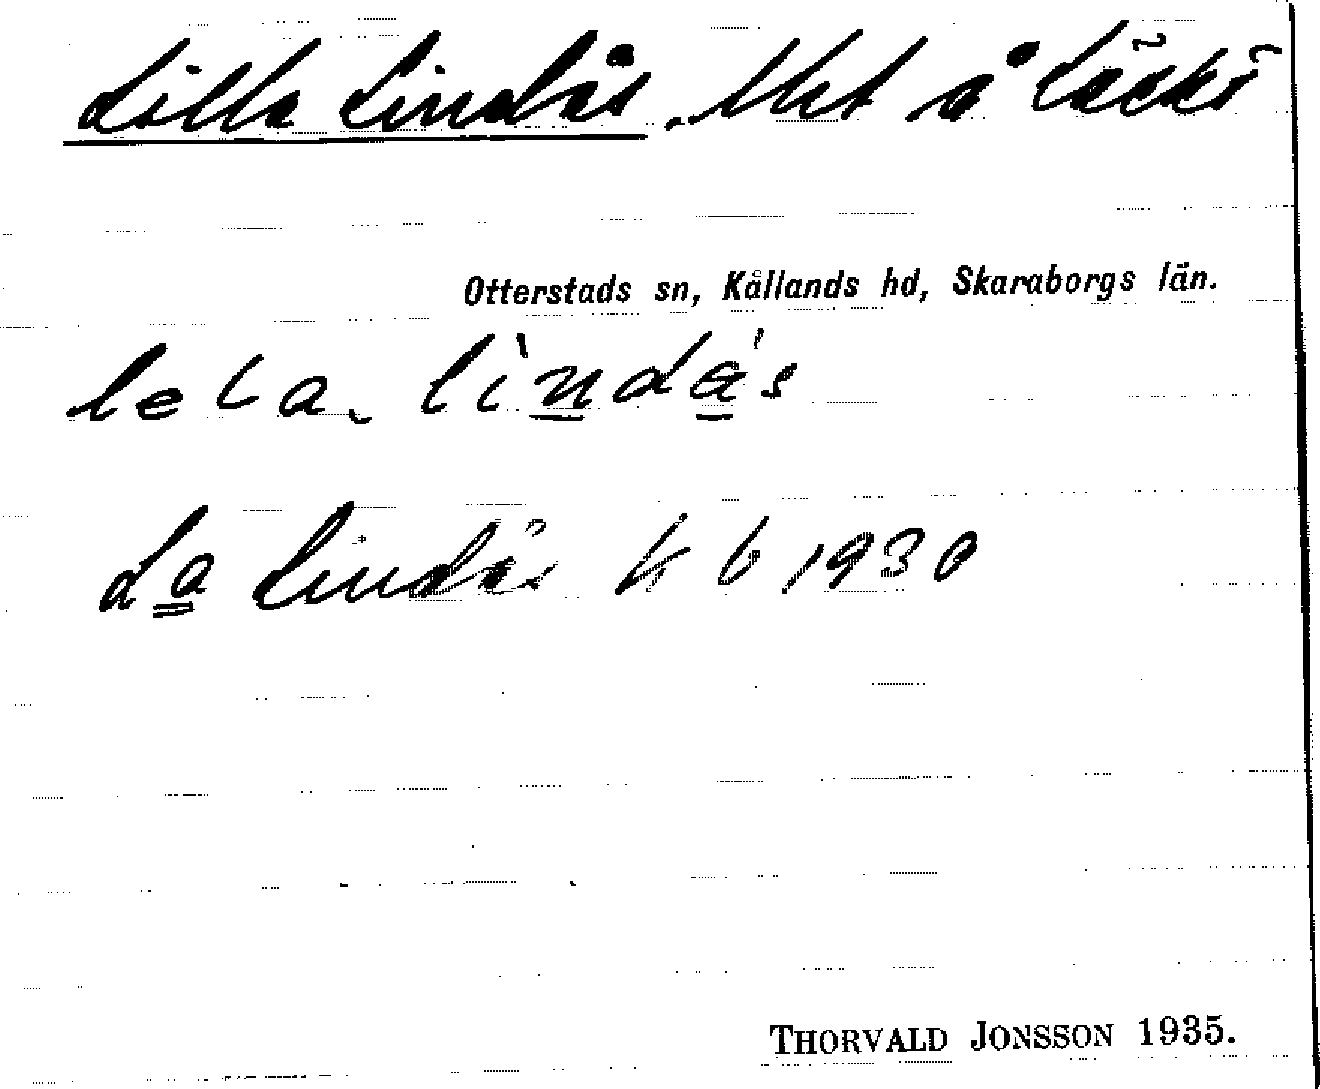 Lilla Lindås, lht å Läckö
Otterstads sn, Kållands hd, Skaraborgs län.
lila lìndás
La Lindås kb 1930
THORVALD JONSSON 1935.